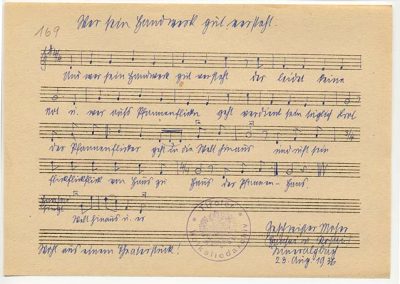 169
Wer sein Handwerk gut versteht.
Und wer sein Handwerk gut versteht der leidet keine
Not u. wer aufs Pfannenflicken geht verdient sein täglich Brot
der Pfannenflicker geht in die Welt hinaus und ruft sein
flickflickflick von Haus zu Haus der Pfannen- Haus
Welt hinaus u. er
Wohl aus einem Theaterstück.
Geschwister Moser
23. Aug. 1936